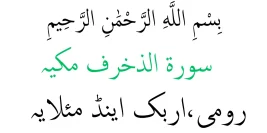 بِسْمِ اللَّهِ الرَّحْمَٰنِ الرَّحِيمِ
سورۃ الذخرف مکیہ
رومی،اربک اینڈ مئلایہ